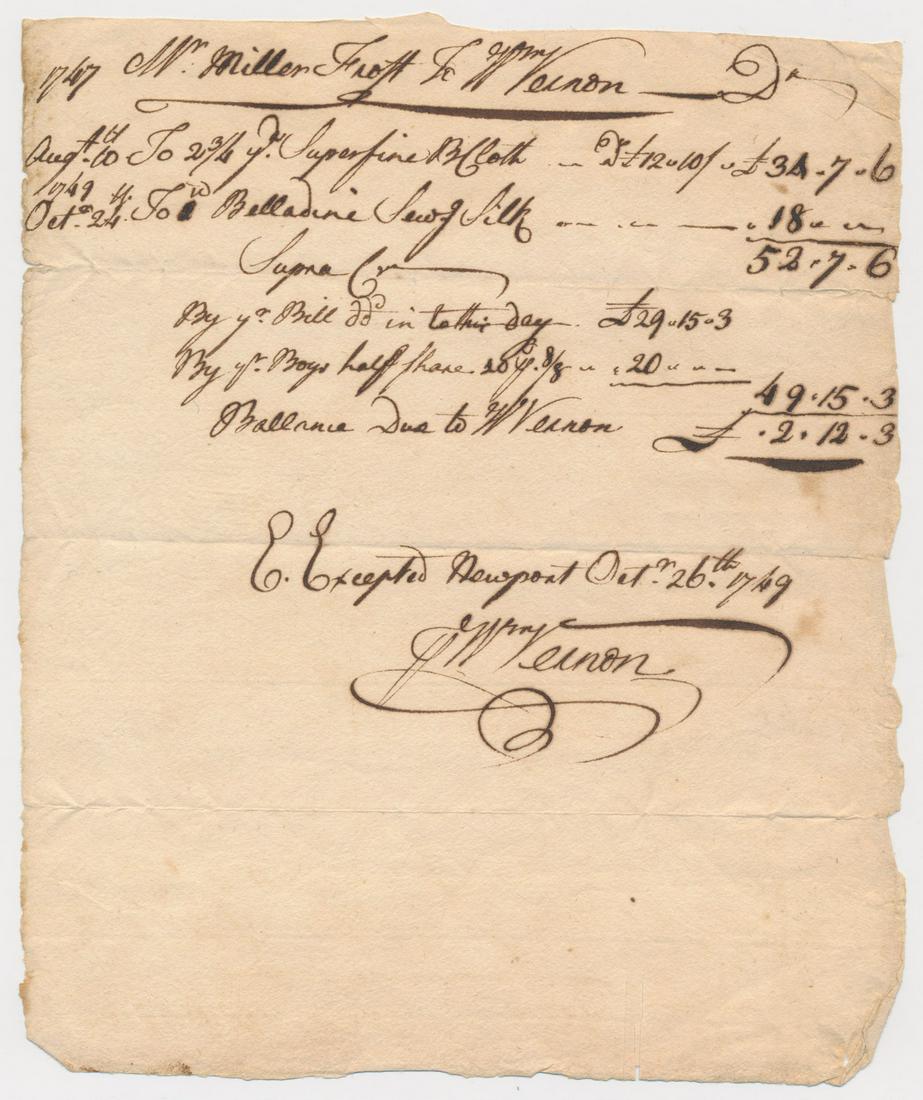 1747 Mr. Miller Frost To Wm Vernon Dr
Augt. 10 To 2 3/4 yd. Superfine B Cloth £12 " 10/ " £34 " 7 " 6
1749
Octr. 24 To 1 Belladine Sewg Silk " 18 " "
52 " 7 " 6
Supra Cr
By yr. Bill dd in to this day £29 " 15 " 3
By yr. Boys half share " 20 " "
49 " 15 " 3
Ballance Due to Wm Vernon £ " 2 " 12 " 3
E. Excepted Newport Octr. 26th. 1749
Wm Vernon